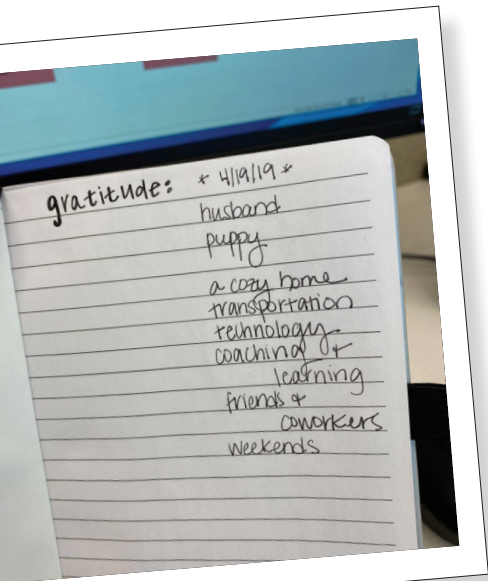 gratitude: * 4/19/19 *
husband
puppy
a cozy home
transportation
technology
coaching +
learning
friends +
coworkers
weekends